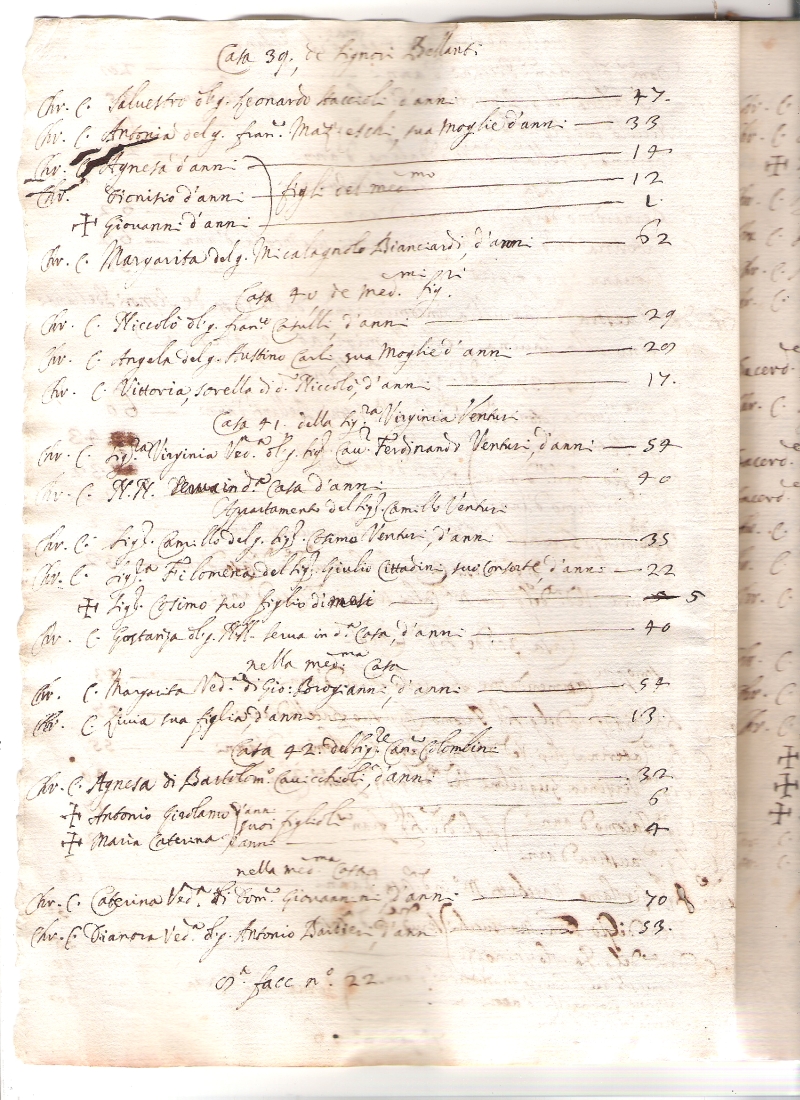 Casa 39. de Signori Bellanti
Chr. C. Salvestro del q. Leonardo Staccioli d'anni 47.
Chr. C. Antonia del q. Fran.co Mazzeschi, sua Moglie d'anni 33
Chr. C. Agnesa d'anni 14
Chr. Dionisio d'anni figli del med.mo 12
✠ Giovanni d'anni 1.
Chr. C. Margarita del q. Micalagnolo Bianciardi, d'anni 62
Casa 40 de med.mi Sig.ri
Chr. C. Niccolò del q. Fran.co Casulli d'anni 29
Chr. C. Angela del q. Austino Carli sua Moglie d'anni 20
Chr. C. Vittoria, sorella di d.o Niccolò, d'anni 17.
Casa 41. della Sig.ra Virginia Venturi
Chr. C. Sig.ra Virginia Ved.a del q. Sig.r Cav.r Ferdinando Venturi, d'anni 54
Chr. C. N.N. serva in d.a Casa d'anni 40
Appartamento del Sig.r Camillo Venturi
Chr. C. Sig.r Camillo del q. Sig.r Cosimo Venturi, d'anni 35
Chr. C. Sig.ra Filomena del Sig.r Giulio Cittadini, suo Consorte, d'anni 22
✠ Sig.r Cosimo suo figlio di mesi 5
Chr. C. Gostanza del q. N.N. serva in d.a Casa, d'anni 40
nella med.ma Casa
Chr. C. Margarita Ved.a di Gio: Brogianni, d'anni 54
Chr. C. Livia sua figlia d'anni 13.
Casa 42. del Sig.re Can.co Colombini
Chr. C. Agnesa di Bartolom.o Cavicchioli, d'anni 32
✠ Antonio Girolamo d'anni 6
suoi figlioli
✠ Maria Caterina d'anni 4
nella med.ma Casa
Chr. C. Caterina Ved.a di Dom.co Giovannini d'anni 70
Chr. C. Dianora Ved.a del q. Antonio Barbieri, d'anni 53.
S.a facc n.o 22